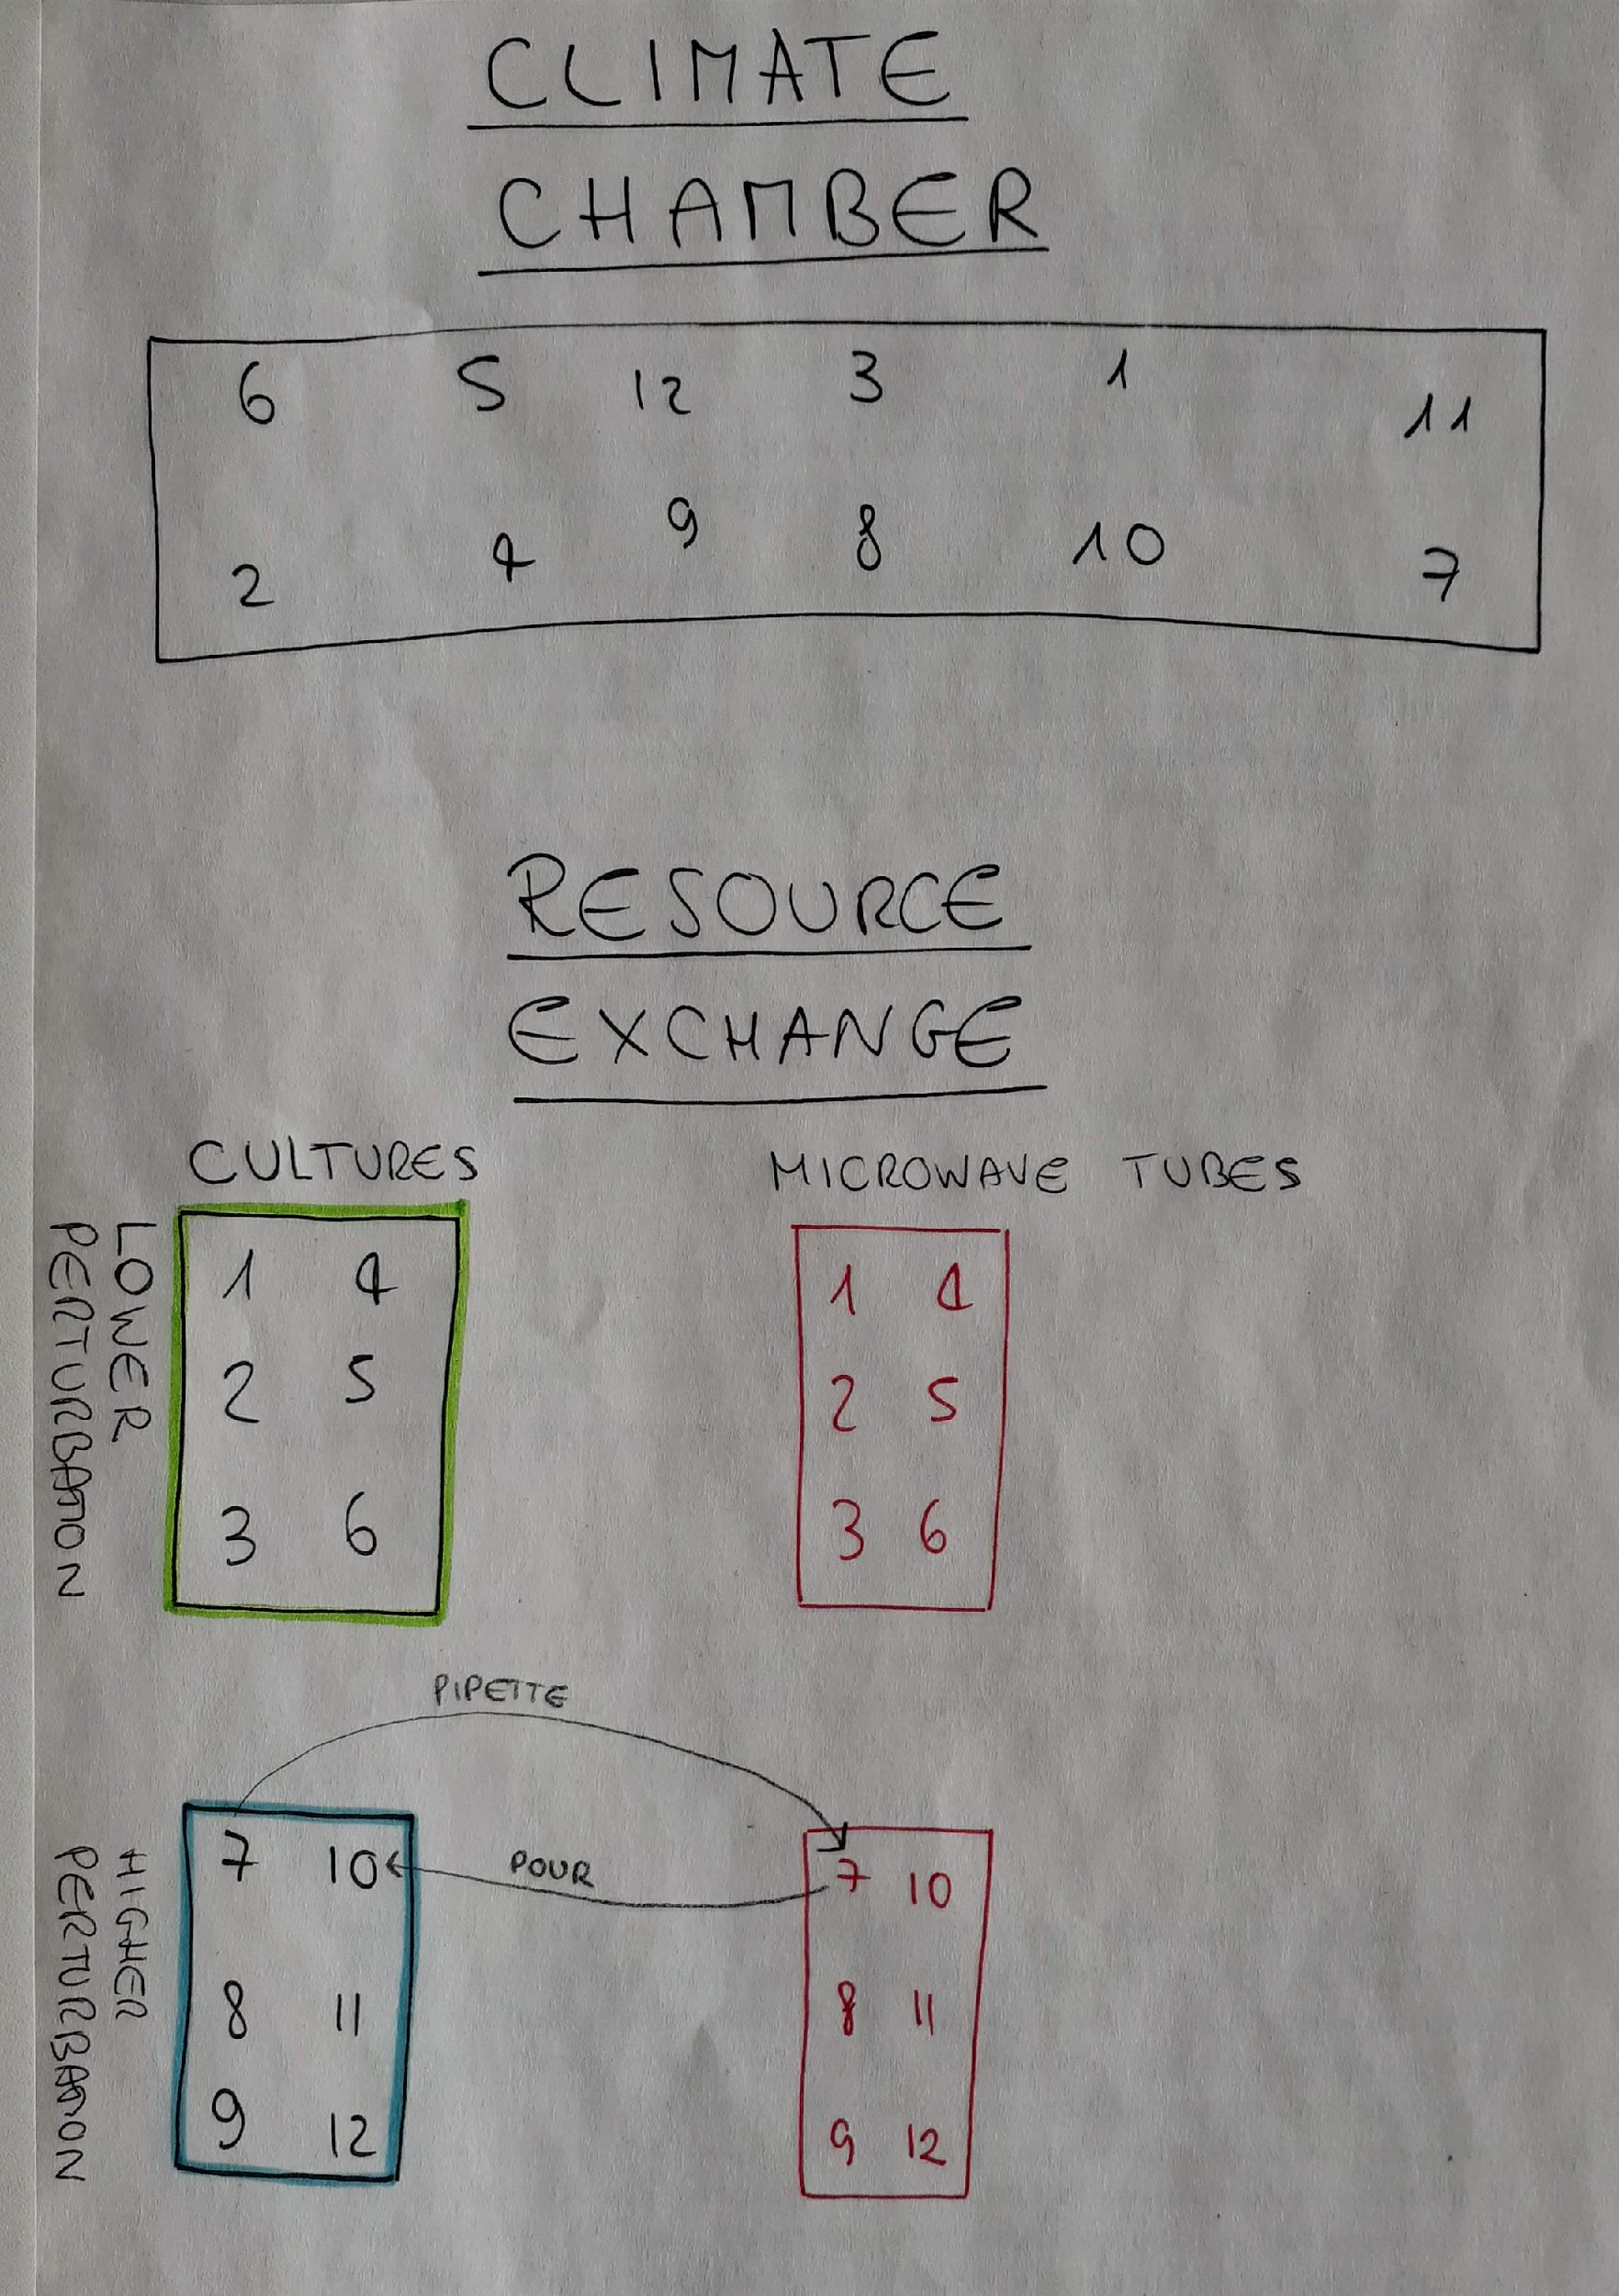 CLIMATE
CHAMBER
6 5 12 3 1 11
2 4 9 8 10 7
RESOURCE
EXCHANGE
CULTURES
MICROWAVE TUBES
LOWER
PERTURBATION
1 4
2 5
3 6
1 4
2 5
3 6
PIPETTE
POUR
HIGHER
PERTURBATION
7 10
8 11
9 12
7 10
8 11
9 12